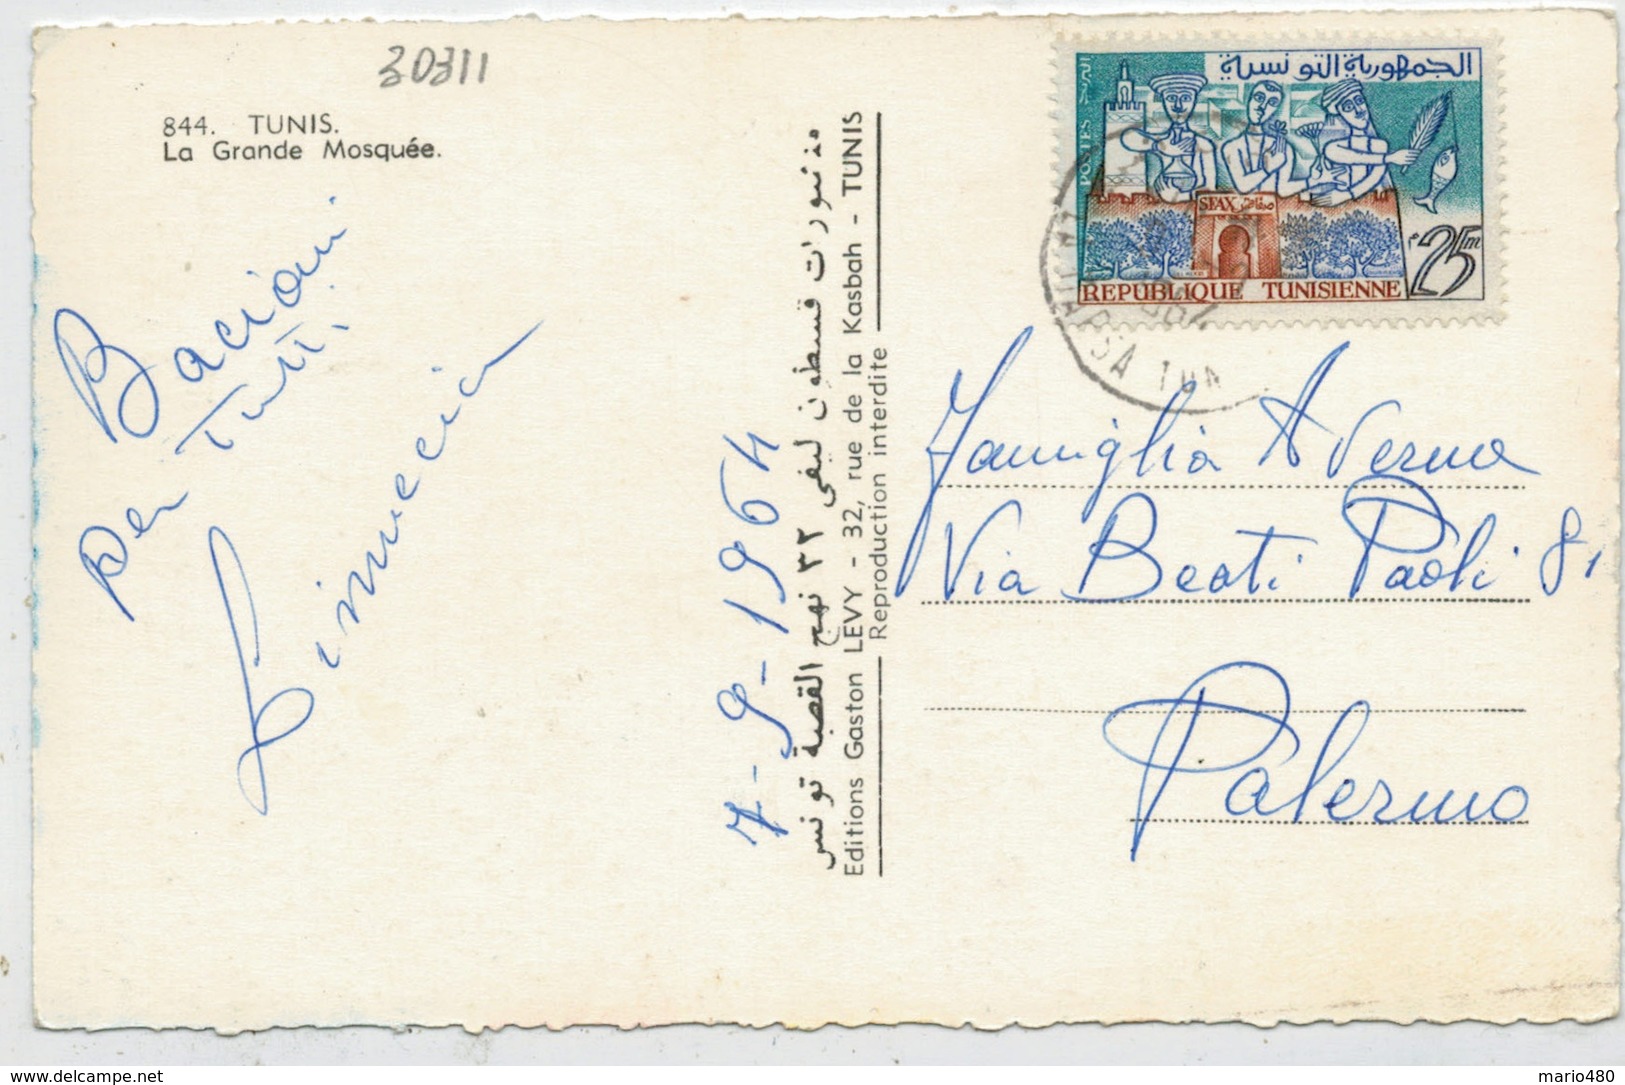 30311
844. TUNIS.
La Grande Mosquée.
Bacioni
per Tutti
7-9-1964
منشورات قسطون ليفي ٣٢ نهج القصبة تونس
Editions Gaston LEVY - 32, rue de la Kasbah - TUNIS
Reproduction interdite
الجمهورية التونسية
POSTES البريد
SFAX صفاقس
25m
REPUBLIQUE TUNISIENNE
Famiglia Averna
Via Beati Paoli 81
Palermo
delcampe.net
mario480